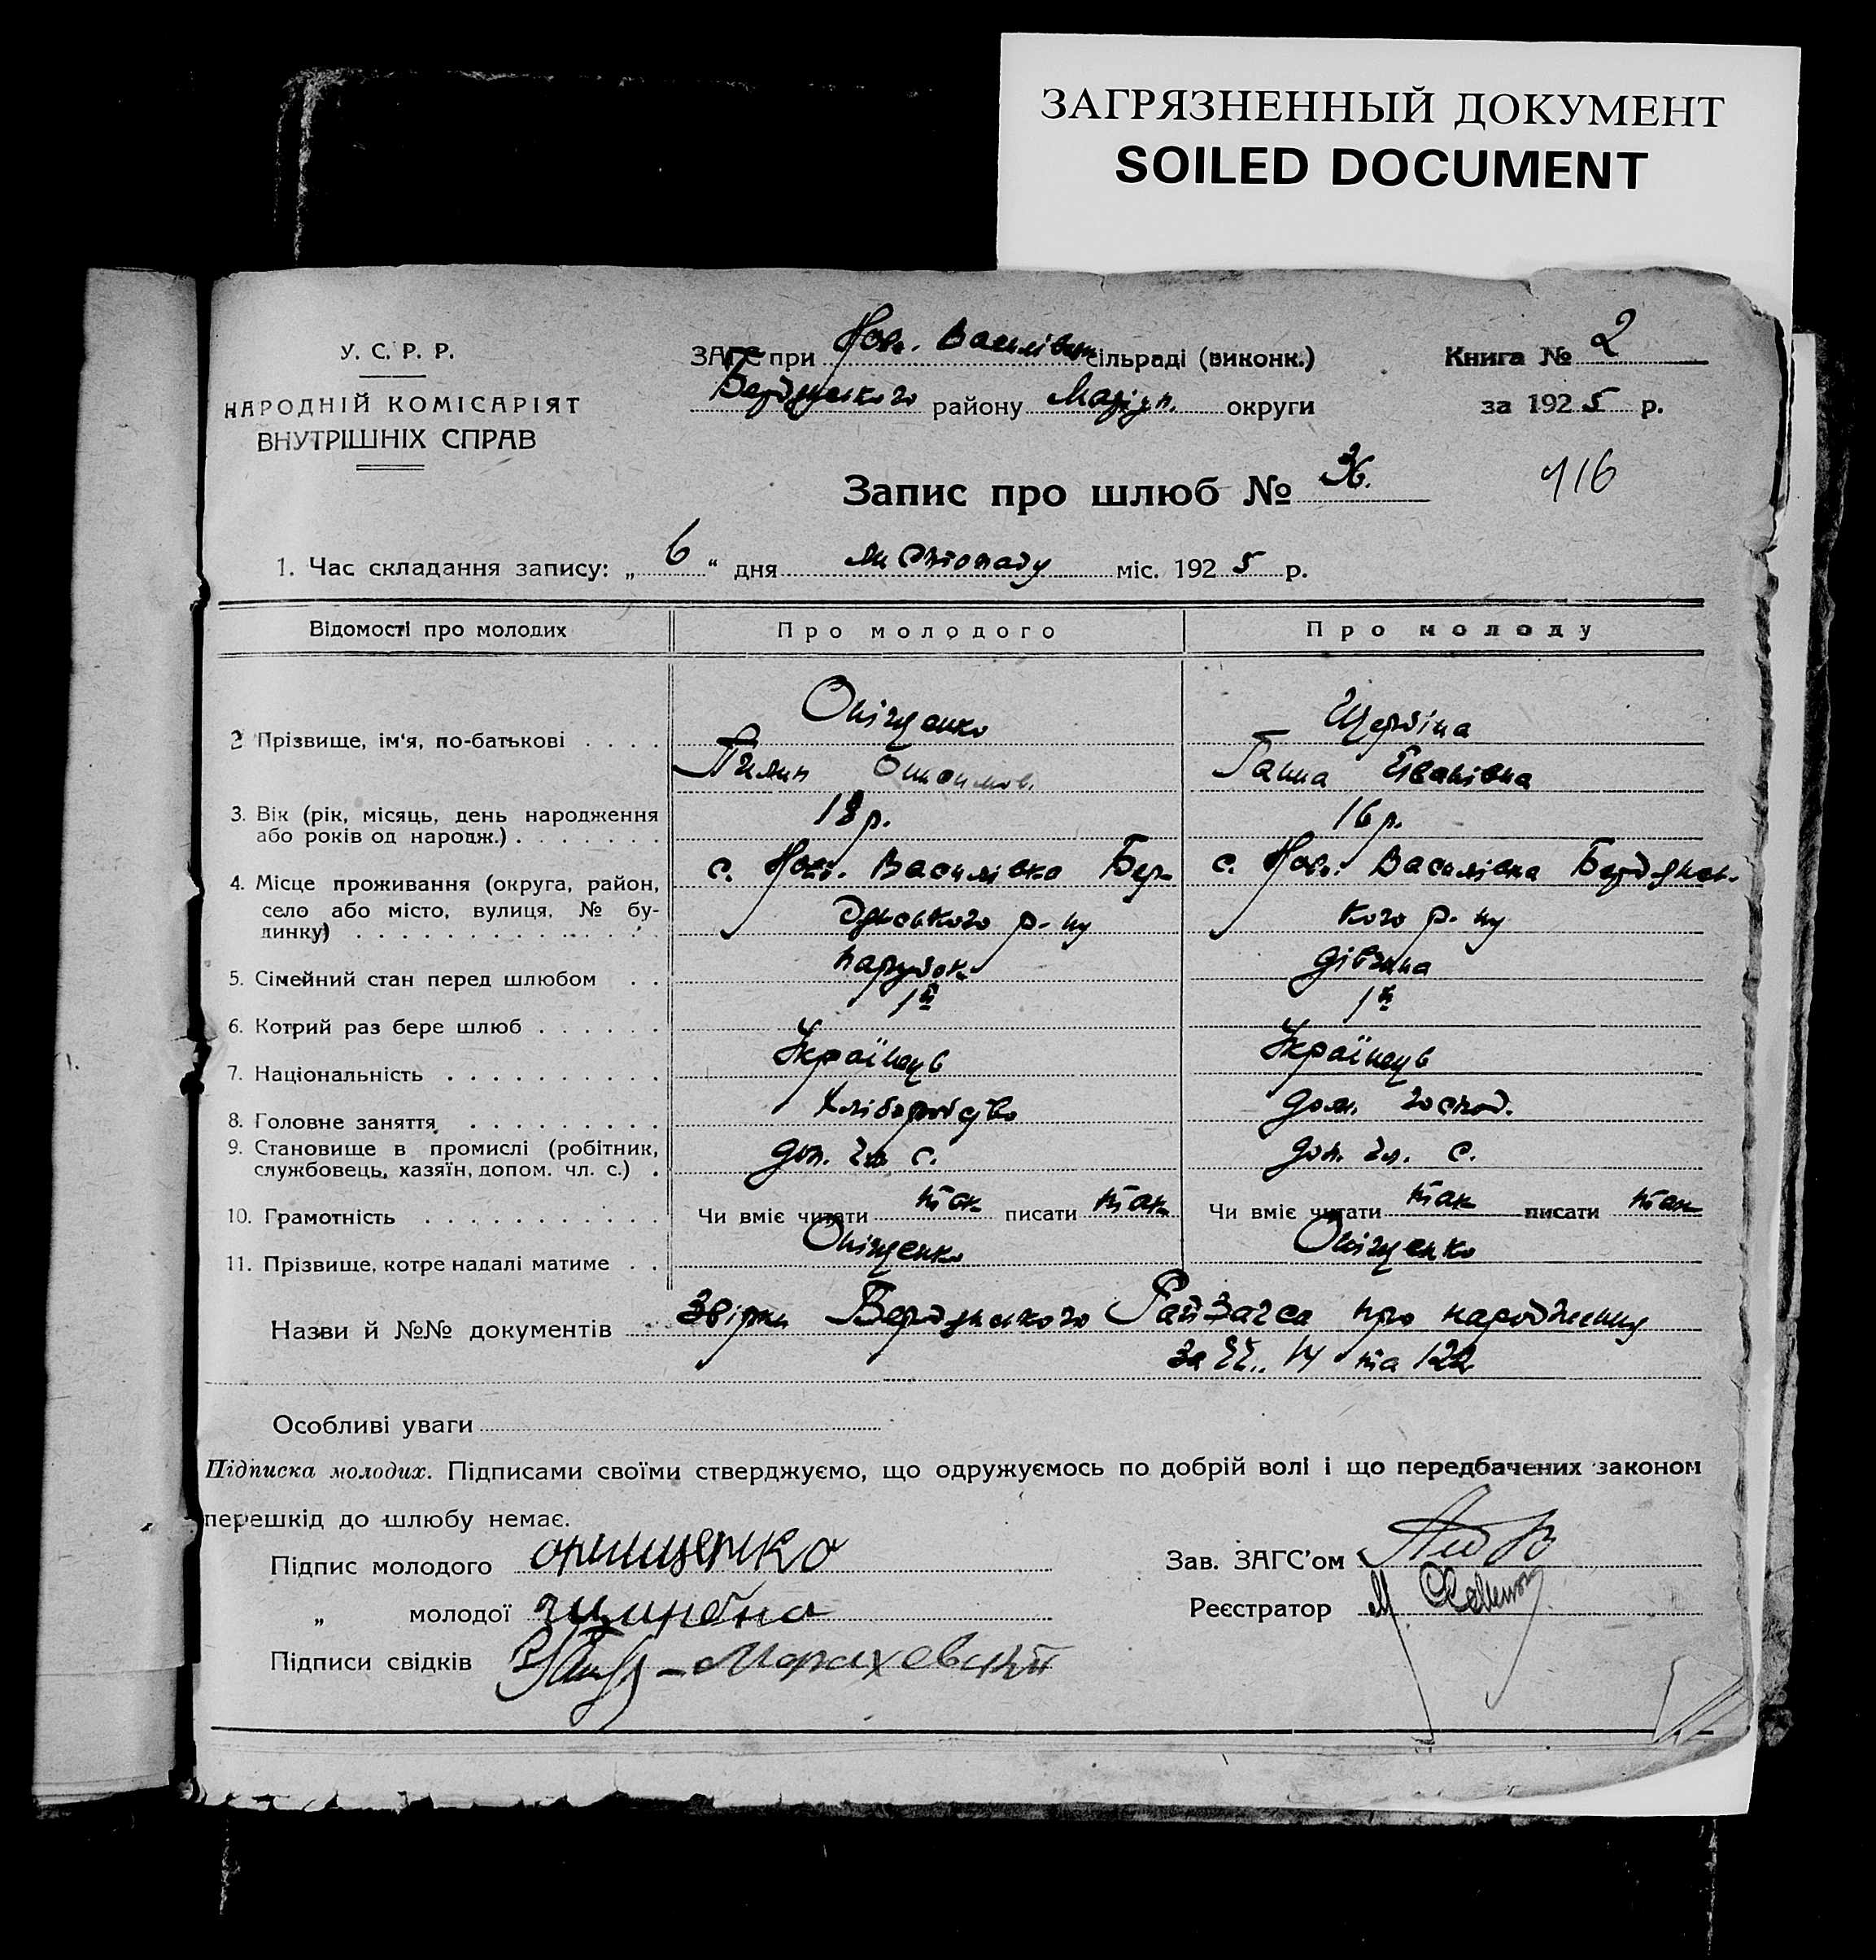 ЗАГРЯЗНЕННЫЙ ДОКУМЕНТ
SOILED DOCUMENT
У. С. Р. Р.
НАРОДНІЙ КОМІСАРІЯТ
ВНУТРІШНІХ СПРАВ
ЗАГС при Нов. Василівск сільраді (виконк.)
Бердянського району Маріуп. округи
Книга № 2
за 1925 р.
Запис про шлюб № 36.
116
1. Час складання запису: „ 6 “ дня листопаду міс. 1925 р.
Відомості про молодих Про молодого Про молоду
Оніщенко Щербіна
2 Прізвище, ім'я, по-батькові . . . .
Пилип Онисимов. Ганна Іванівна
3. Вік (рік, місяць, день народження 18 р. 16 р.
або років од народж.) . . . . . . .
с. Нов. Василівка Бер- с. Нов. Василівка Бердянсь-
4. Місце проживання (округа, район,
село або місто, вулиця, № бу- дянського р-ну кого р-ну
динку) . . . . . . . . . . . . . .
5. Сімейний стан перед шлюбом . . парубок дівчина
6. Котрий раз бере шлюб . . . . . . 1й 1й
7. Національність . . . . . . . . . . Українець Українець
8. Головне заняття . . . . . . . . . Хліборобство дом. господ.
9. Становище в промислі (робітник, доп. чл. с. доп. чл. с.
службовець, хазяїн, допом. чл. с.) .
10. Грамотність . . . . . . . . . . . Чи вміє читати так писати так Чи вміє читати так писати так
11. Прізвище, котре надалі матиме . . Оніщенко Оніщенко
Назви й №№ документів Звірки Бердянського РайЗагса про народження
за 14 та 122
Особливі уваги
Підписка молодих. Підписами своїми стверджуємо, що одружуємось по добрій волі і що передбачених законом
перешкід до шлюбу немає.
Підпис молодого онищенко Зав. ЗАГС'ом
„ молодої Реєстратор М
Підписи свідків